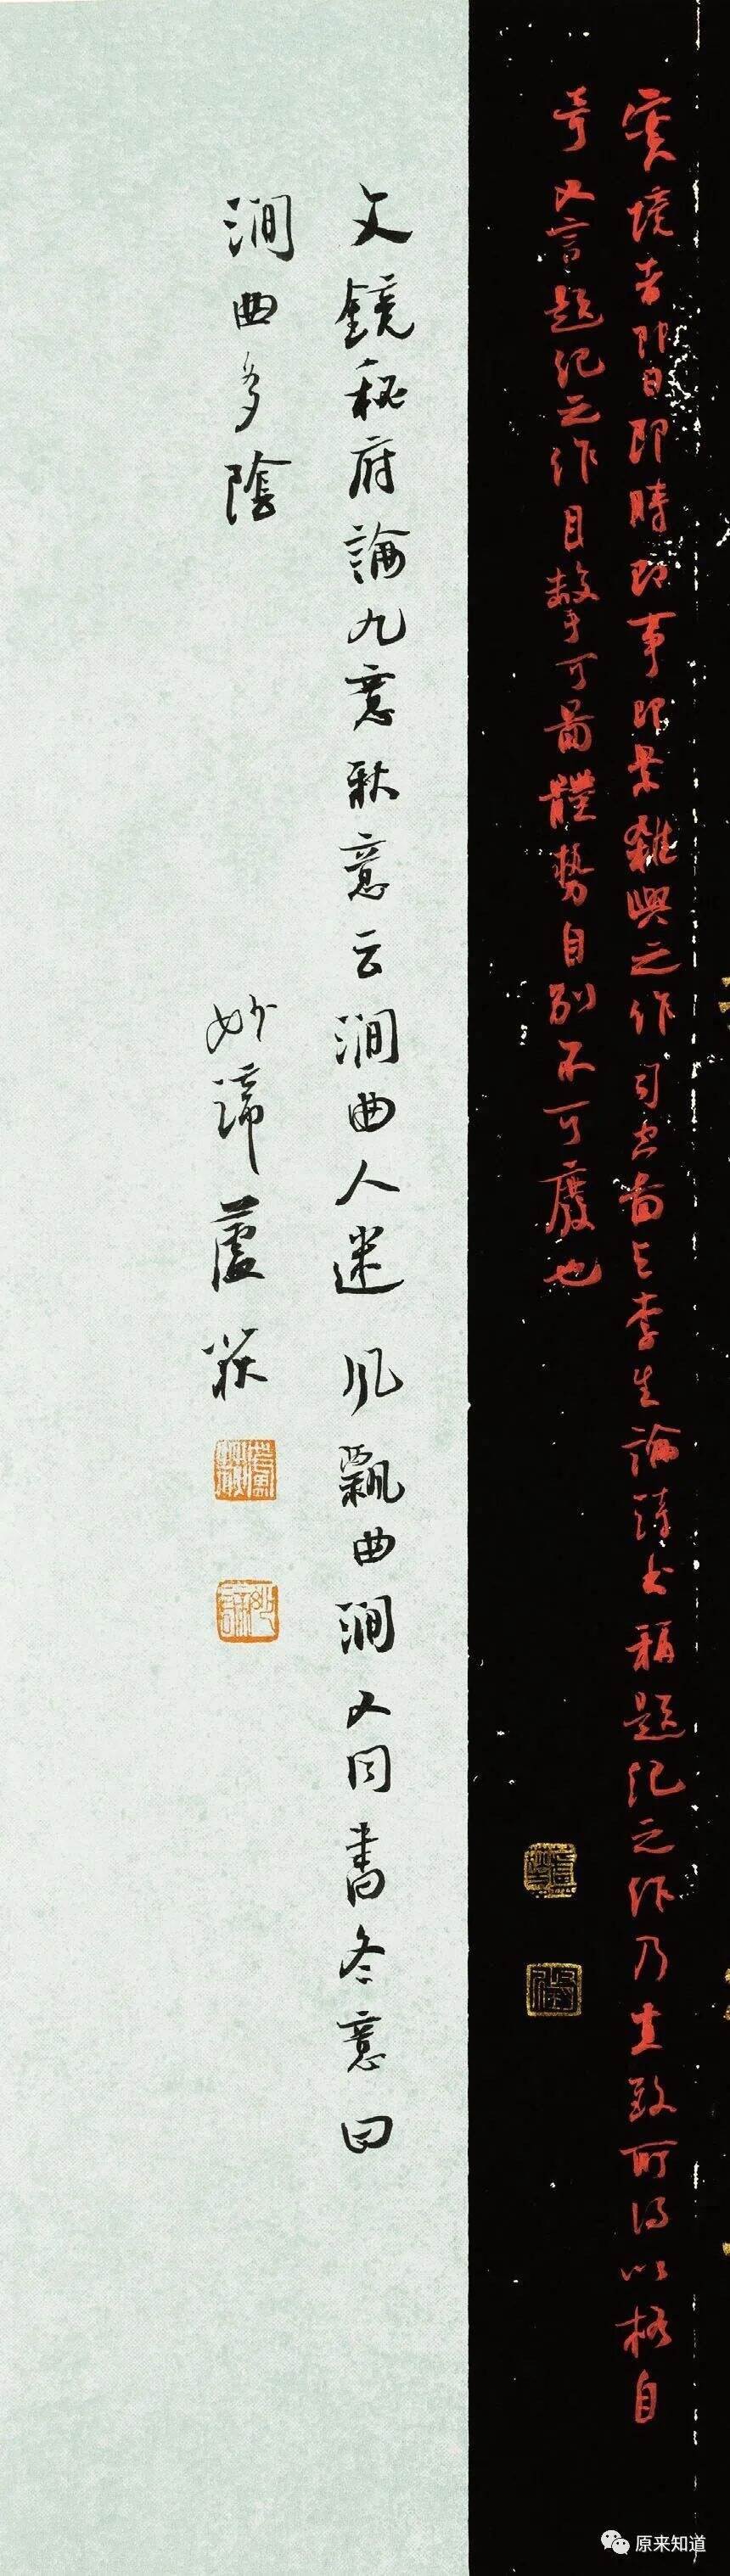 實境者即日即時即事即景雜興之作司空圖與李生論詩書稱題紀之作乃直致所得以格自
奇又言題紀之作目擊可圖體勢自別不可廢也
文鏡秘府論九意秋意云澗曲人迷 風飄曲澗又同書冬意曰
澗曲多陰
妙諦蘆荻
原来知道